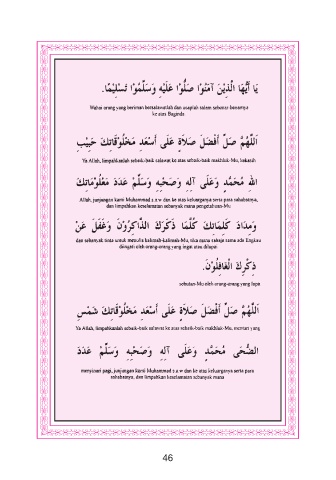 يَا أَيُّهَا الَّذِيْنَ آمَنُوْا صَلُّوْا عَلَيْهِ وَسَلِّمُوْا تَسْلِيْمًا.
Wahai orang yang beriman bersalawatlah dan ucaplah salam sebenar-benarnya
ke atas Baginda
اَللّٰهُمَّ صَلِّ أَفْضَلَ صَلَاةٍ عَلَى أَسْعَدِ مَخْلُوْقَاتِكَ حَبِيْبِ
Ya Allah, limpahkanlah sebaik-baik salawat ke atas sebaik-baik makhluk-Mu, kekasih
اللهِ مُحَمَّدٍ وَعَلَى آلِهِ وَصَحْبِهِ وَسَلِّمْ عَدَدَ مَعْلُوْمَاتِكَ
Allah, junjungan kami Muhammad s.a.w dan ke atas keluarganya serta para sahabatnya,
dan limpahkan keselamatan sebanyak mana pengetahuan-Mu
وَمِدَادَ كَلِمَاتِكَ كُلَّمَا ذَكَرَكَ الذَّاكِرُوْنَ وَغَفَلَ عَنْ
dan sebanyak tinta untuk menulis kalimah-kalimah-Mu, tika mana sahaja sama ada Engkau
diingati oleh orang-orang yang ingat atau dilupai
ذِكْرِكَ الْغَافِلُوْنَ.
sebutan-Mu oleh orang-orang yang lupa
اَللّٰهُمَّ صَلِّ أَفْضَلَ صَلَاةٍ عَلَى أَسْعَدِ مَخْلُوْقَاتِكَ شَمْسِ
Ya Allah, limpahkanlah sebaik-baik salawat ke atas sebaik-baik makhluk-Mu, mentari yang
الضُّحَى مُحَمَّدٍ وَعَلَى آلِهِ وَصَحْبِهِ وَسَلِّمْ عَدَدَ
menyinari pagi, junjungan kami Muhammad s.a.w dan ke atas keluarganya serta para
sahabatnya, dan limpahkan keselamatan sebanyak mana
46